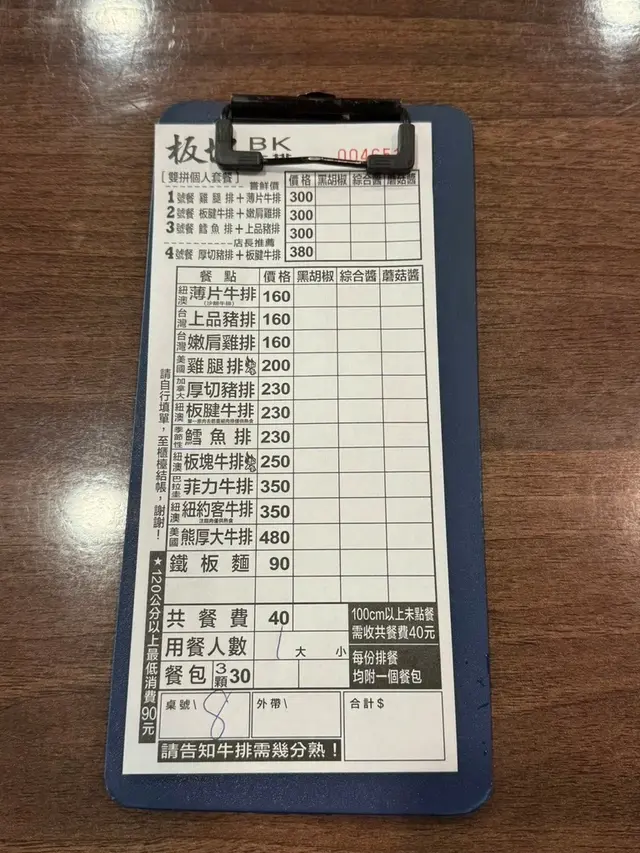 BK
[雙拼個人套餐]
嘗鮮價 價格 黑胡椒 綜合醬 蘑菇醬
1號餐 雞腿排+薄片牛排 300
2號餐 板腱牛排+嫩肩雞排 300
3號餐 鱈魚排+上品豬排 300
店長推薦
4號餐 厚切豬排+板腱牛排 380
餐點 價格 黑胡椒 綜合醬 蘑菇醬
紐澳 薄片牛排 160
台灣 上品豬排 160
台灣 嫩肩雞排 160
美國 雞腿排 200
加拿大 厚切豬排 230
紐澳 板腱牛排 230
季節性 鱈魚排 230
紐澳 板塊牛排 250
巴拉圭 菲力牛排 350
紐澳 紐約客牛排 350
美國 熊厚大牛排 480
鐵板麵 90
共餐費 40
100cm以上未點餐
需收共餐費40元
用餐人數 1 大 小
餐包 3顆 30
每份排餐
均附一個餐包
桌號\ 8 外帶\ 合計$
請告知牛排需幾分熟！
請自行填單，至櫃檯結帳，謝謝！
★120公分以上最低消費90元